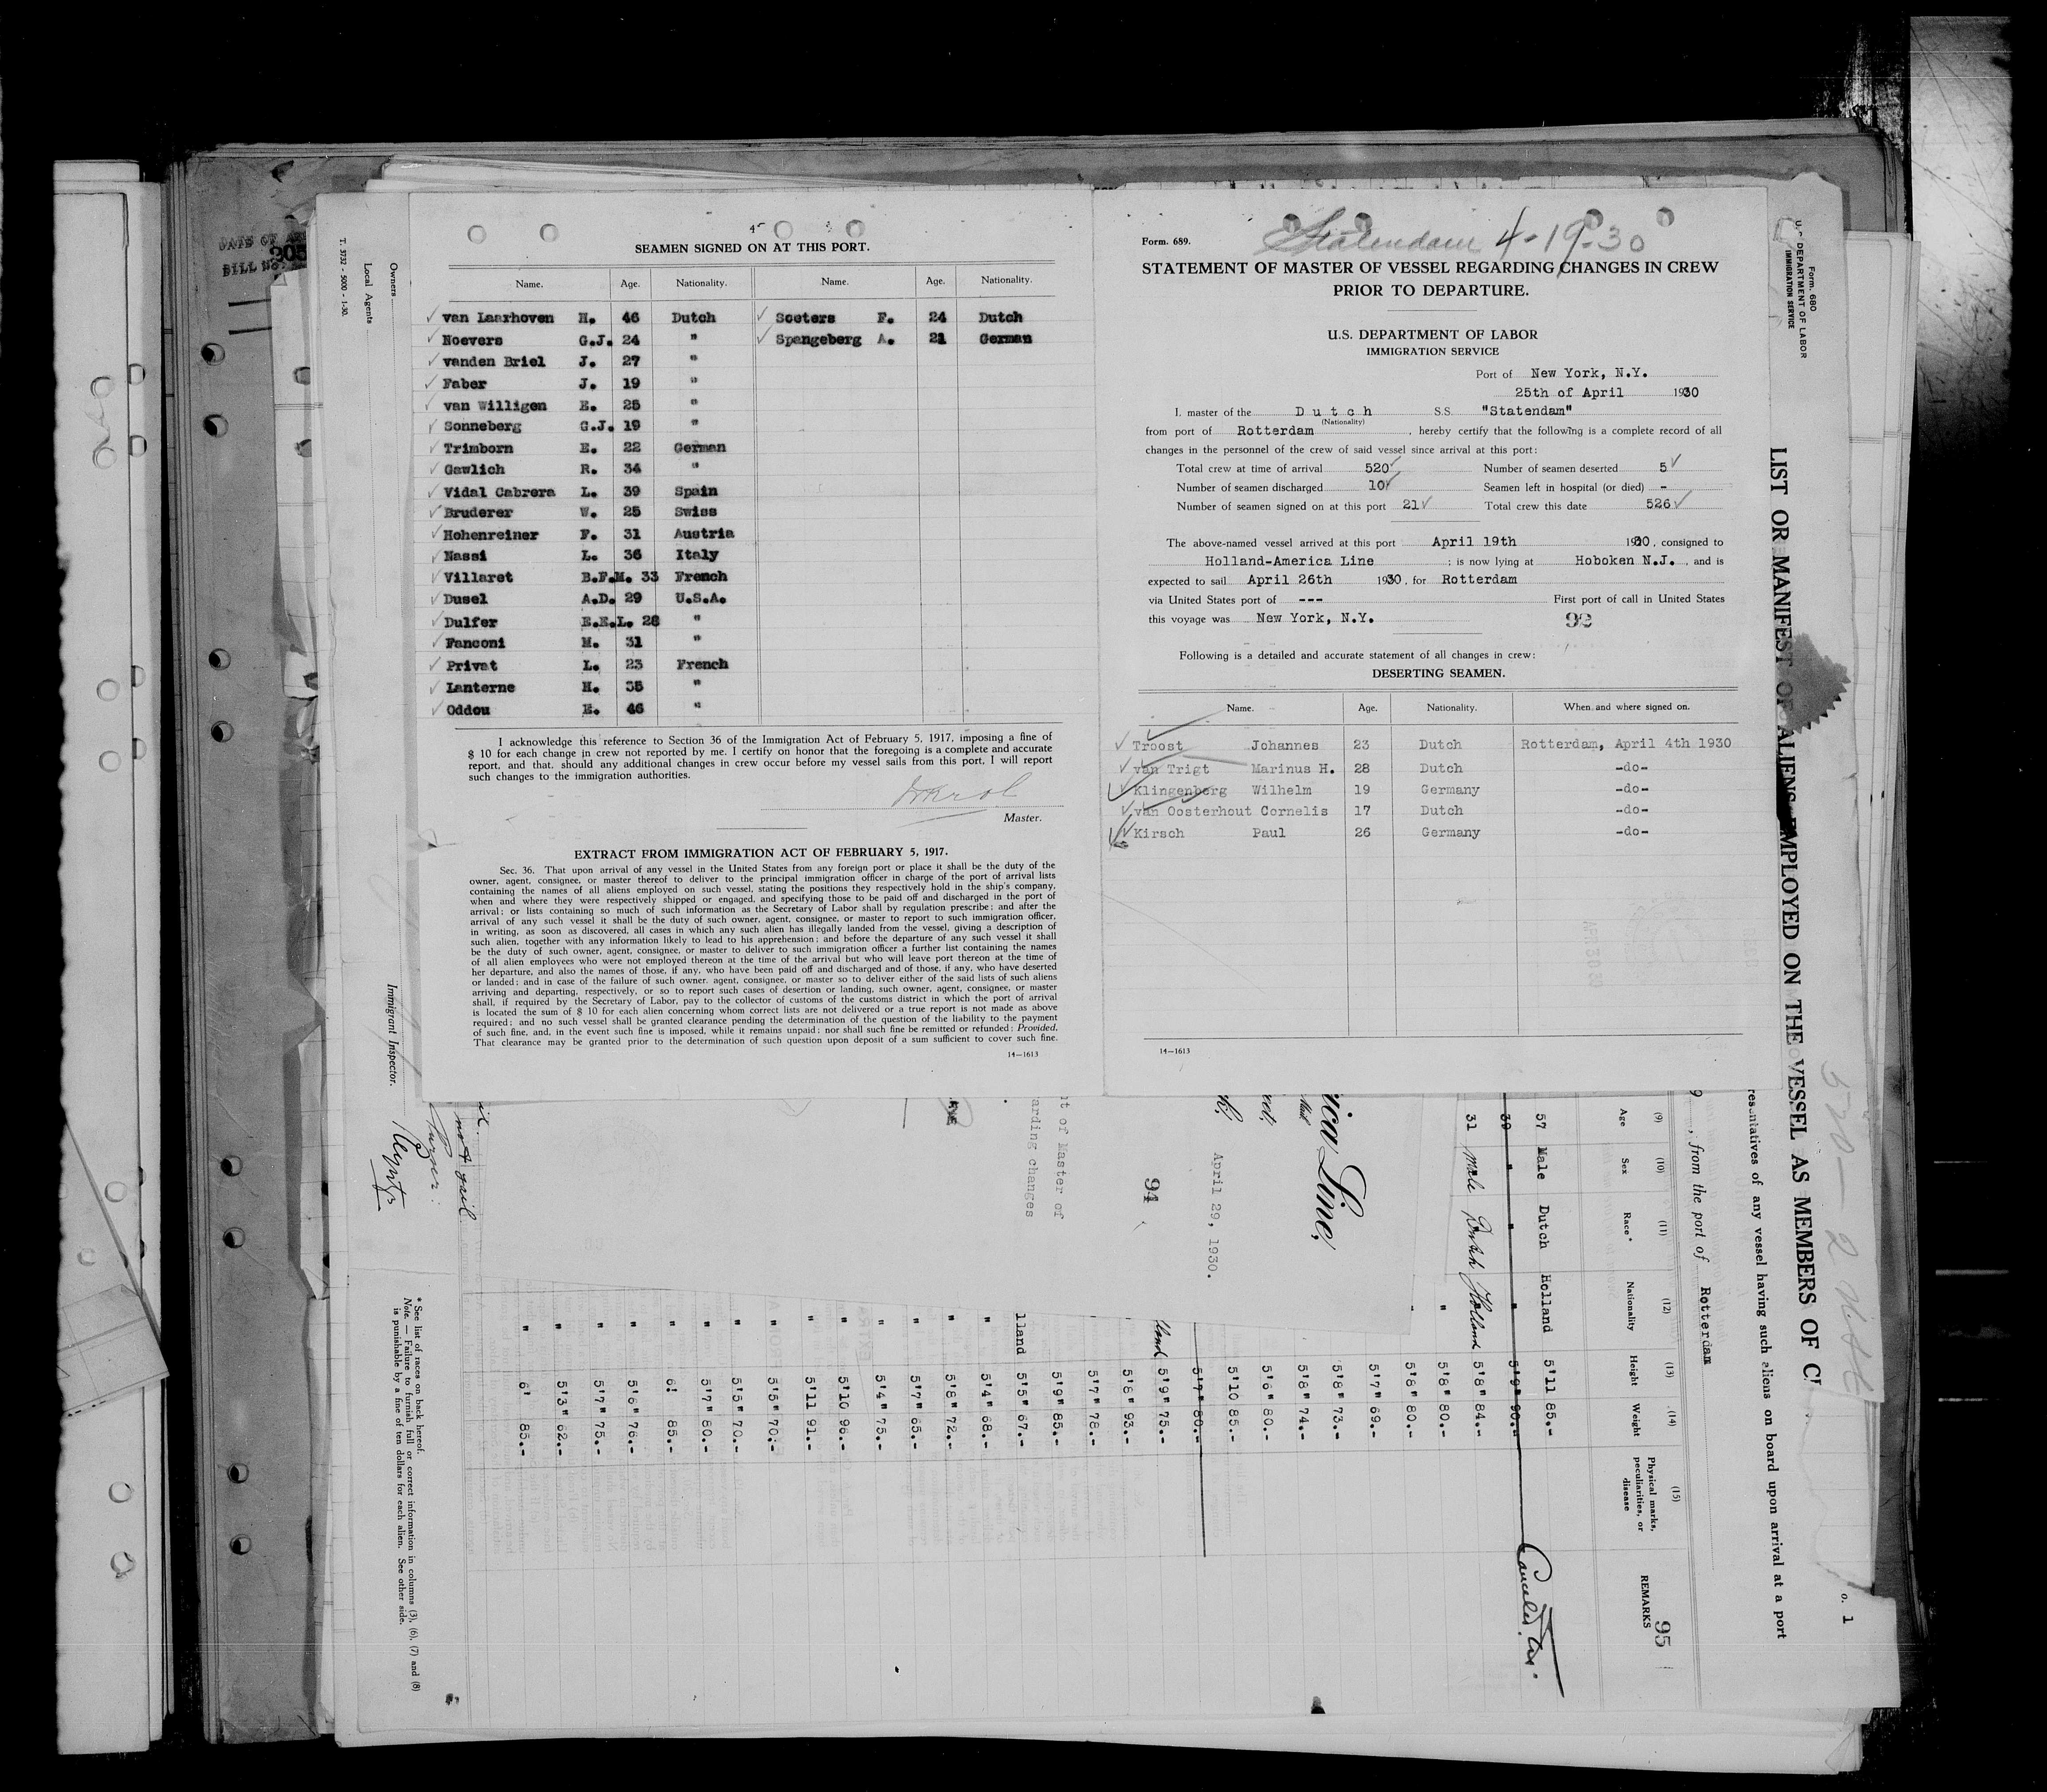 SEAMEN SIGNED ON AT THIS PORT.
Name. Age. Nationality. Name. Age. Nationality.
van Laarhoven H. 46 Dutch Sceters F. 24 Dutch
Noevers G.J. 24 " Spangeberg A. 21 German
vanden Briel J. 27 "
Faber J. 19 "
van Willigen E. 25 "
Sonneberg G.J. 19 "
Trimborn E. 22 German
Gawlich R. 34 "
Vidal Cabrera L. 39 Spain
Bruderer W. 25 Swiss
Hohenreiner F. 31 Austria
Nassi L. 36 Italy
Villaret B.F.M. 33 French
Dusel A.D. 29 U.S.A.
Dulfer E.E.L. 28 "
Fanconi M. 31 "
Privat L. 23 French
Lanterne H. 35 "
Oddou E. 46 "
I acknowledge this reference to Section 36 of the Immigration Act of February 5, 1917, imposing a fine of
$ 10 for each change in crew not reported by me. I certify on honor that the foregoing is a complete and accurate
report, and that, should any additional changes in crew occur before my vessel sails from this port, I will report
such changes to the immigration authorities.
Master.
EXTRACT FROM IMMIGRATION ACT OF FEBRUARY 5, 1917.
Sec. 36. That upon arrival of any vessel in the United States from any foreign port or place it shall be the duty of the
owner, agent, consignee, or master thereof to deliver to the principal immigration officer in charge of the port of arrival lists
containing the names of all aliens employed on such vessel, stating the positions they respectively hold in the ship's company,
when and where they were respectively shipped or engaged, and specifying those to be paid off and discharged in the port of
arrival; or lists containing so much of such information as the Secretary of Labor shall by regulation prescribe; and after the
arrival of any such vessel it shall be the duty of such owner, agent, consignee, or master to report to such immigration officer,
in writing, as soon as discovered, all cases in which any such alien has illegally landed from the vessel, giving a description of
such alien, together with any information likely to lead to his apprehension; and before the departure of any such vessel it shall
be the duty of such owner, agent, consignee, or master to deliver to such immigration officer a further list containing the names
of all alien employees who were not employed thereon at the time of the arrival but who will leave port thereon at the time of
her departure, and also the names of those, if any, who have been paid off and discharged and of those, if any, who have deserted
or landed; and in case of the failure of such owner. agent, consignee, or master so to deliver either of the said lists of such aliens
arriving and departing, respectively, or so to report such cases of desertion or landing, such owner, agent, consignee, or master
shall, if required by the Secretary of Labor, pay to the collector of customs of the customs district in which the port of arrival
is located the sum of $ 10 for each alien concerning whom correct lists are not delivered or a true report is not made as above
required; and no such vessel shall be granted clearance pending the determination of the question of the liability to the payment
of such fine, and, in the event such fine is imposed, while it remains unpaid; nor shall such fine be remitted or refunded: Provided,
That clearance may be granted prior to the determination of such question upon deposit of a sum sufficient to cover such fine.
14—1613
Form. 689.
Statendam 4-19-30
STATEMENT OF MASTER OF VESSEL REGARDING CHANGES IN CREW
PRIOR TO DEPARTURE.
U.S. DEPARTMENT OF LABOR
IMMIGRATION SERVICE
Port of New York, N.Y.
25th of April 1930
I. master of the Dutch S.S. "Statendam"
(Nationality)
from port of Rotterdam, hereby certify that the following is a complete record of all
changes in the personnel of the crew of said vessel since arrival at this port:
Total crew at time of arrival 520 Number of seamen deserted 5
Number of seamen discharged 10 Seamen left in hospital (or died) -
Number of seamen signed on at this port 21 Total crew this date 526
The above-named vessel arrived at this port April 19th 1930, consigned to
Holland-America Line; is now lying at Hoboken N.J., and is
expected to sail April 26th 1930, for Rotterdam
via United States port of --- First port of call in United States
this voyage was New York, N.Y.
92
Following is a detailed and accurate statement of all changes in crew:
DESERTING SEAMEN.
Name. Age. Nationality. When and where signed on.
Troost Johannes 23 Dutch Rotterdam, April 4th 1930
van Trigt Marinus H. 28 Dutch -do-
Klingenberg Wilhelm 19 Germany -do-
van Oosterhout Cornelis 17 Dutch -do-
Kirsch Paul 26 Germany -do-
14—1613
Form. 680
U.S. DEPARTMENT OF LABOR
IMMIGRATION SERVICE
LIST OR MANIFEST OF ALIENS EMPLOYED ON THE VESSEL AS MEMBERS OF C
resentatives of any vessel having such aliens on board upon arrival at a port
9, from the port of Rotterdam
o. 1
95
(9) (10) (11) (12) (13) (14) (15)
Age Sex Race* Nationality Height Weight Physical marks, peculiarities, or disease REMARKS
57 Male Dutch Holland 5'11 85.-
39 " " " 5'9" 90.-
31 Male Dutch Holland 5'8" 84.-
" 5'8" 80.-
" 5'8" 80.-
5'7" 69.-
5'8" 73.-
5'8" 74.-
5'6" 80.-
5'10 85.-
5'7" 80.-
5'9" 75.-
5'8" 93.-
5'7" 78.-
5'9" 85.-
lland 5'5" 67.-
" 5'4" 68.-
" 5'8" 72.-
" 5'7" 65.-
" 5'4" 75.-
" 5'10 96.-
" 5'11 91.-
" 5'5" 70.-
" 5'5" 70.-
" 5'7" 80.-
" 6! 85.-
" 5'6" 76.-
" 5'7" 75.-
" 5'3" 62.-
" 6' 85.-
rica Line,
April 29, 1930.
94
nt of Master of
arding changes
T. 3732 - 5000 - 1-30.
Local Agents
Owners
Immigrant Inspector.
* See list of races on back hereof.
Note. — Failure to furnish full or correct information in columns (3), (6), (7) and (8)
is punishable by a fine of ten dollars for each alien. See other side.
BILL NO.
205